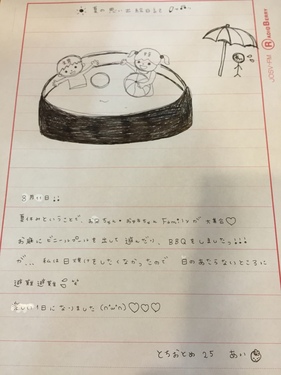 ☀ 夏の思い出 ♪♫
RADIO BERRY
JOSV-FM
8月11日!!
夏休みということで、
Familyが大集合♡
お庭にビニールプールを出して遊んだり、BBQをしましたっ!!!
が... 私は日焼けをしたくなかったので 日のあたらないところに
避難避難
楽しい1日になりました(n'ω'n)♡♡♡
とちおとめ25 あい